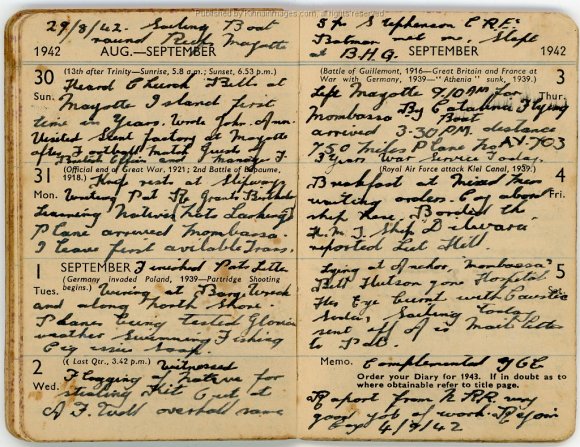 Published by PonnamImages.com
29/8/42. Sailing Boat
round Reef Mayotte
1942 AUG.—SEPTEMBER
30 (13th after Trinity—Sunrise, 5.8 a.m.; Sunset, 6.53 p.m.)
Sun. Heard Church Bells at
Mayotte Island first
time in Years. Wrote John. Ann.
Visited Sisal factory at Mayotte
after Football Match Guests of
British and Manager
31 (Official end of Great War, 1921; 2nd Battle of Bapaume, 1918.)
Mon. Kept rest at Slipway
Writing Pat Re Grants Birthday
Learning Natives
Plane arrived Mombassa.
I leave first available Trans.
1 SEPTEMBER Finished Pats Letter
Tues. (Germany invaded Poland, 1939—Partridge Shooting begins.)
at Barge Wreck
and along North Shore
Planes being tested Glorious
weather Swimming Fishing
2 (☾ Last Qtr., 3.42 p.m.) Witnessed
Wed. Flogging Native for
stealing Kit Out at
A.F. Well overhall
Stephenson C.R.E.
Batman met me. Slept
at B.H.Q.
SEPTEMBER 1942
(Battle of Guillemont, 1916—Great Britain and France at War with Germany, 1939—"Athenia" sunk, 1939.) 3
Left Mayotte 7.10AM for Thur.
Mombassa By Catalina Flying
Boat
arrived 3-30 P.M. distance
750 Miles Plane No AY-703
3 Years War Service Today.
(Royal Air Force attack Kiel Canal, 1939.) 4
Breakfast at Mixed Mess Fri.
waiting orders. Coy aboard
ship here. Borded th
H.M.T. Ship Dilwara
reported Lieut Hill
Lying at Anchor, Mombassa 5
Bill Hutson gone Hospital Sat.
His Eye burnt with Caustic
Soda, Sailing today
sent off Air Mail letter
to Pat.
Memo. Complemented
Order your Diary for 1943. If in doubt as to where obtainable refer to title page.
Report from N.R.R. very
good job of work. Rejoin
Coy 4/9/42